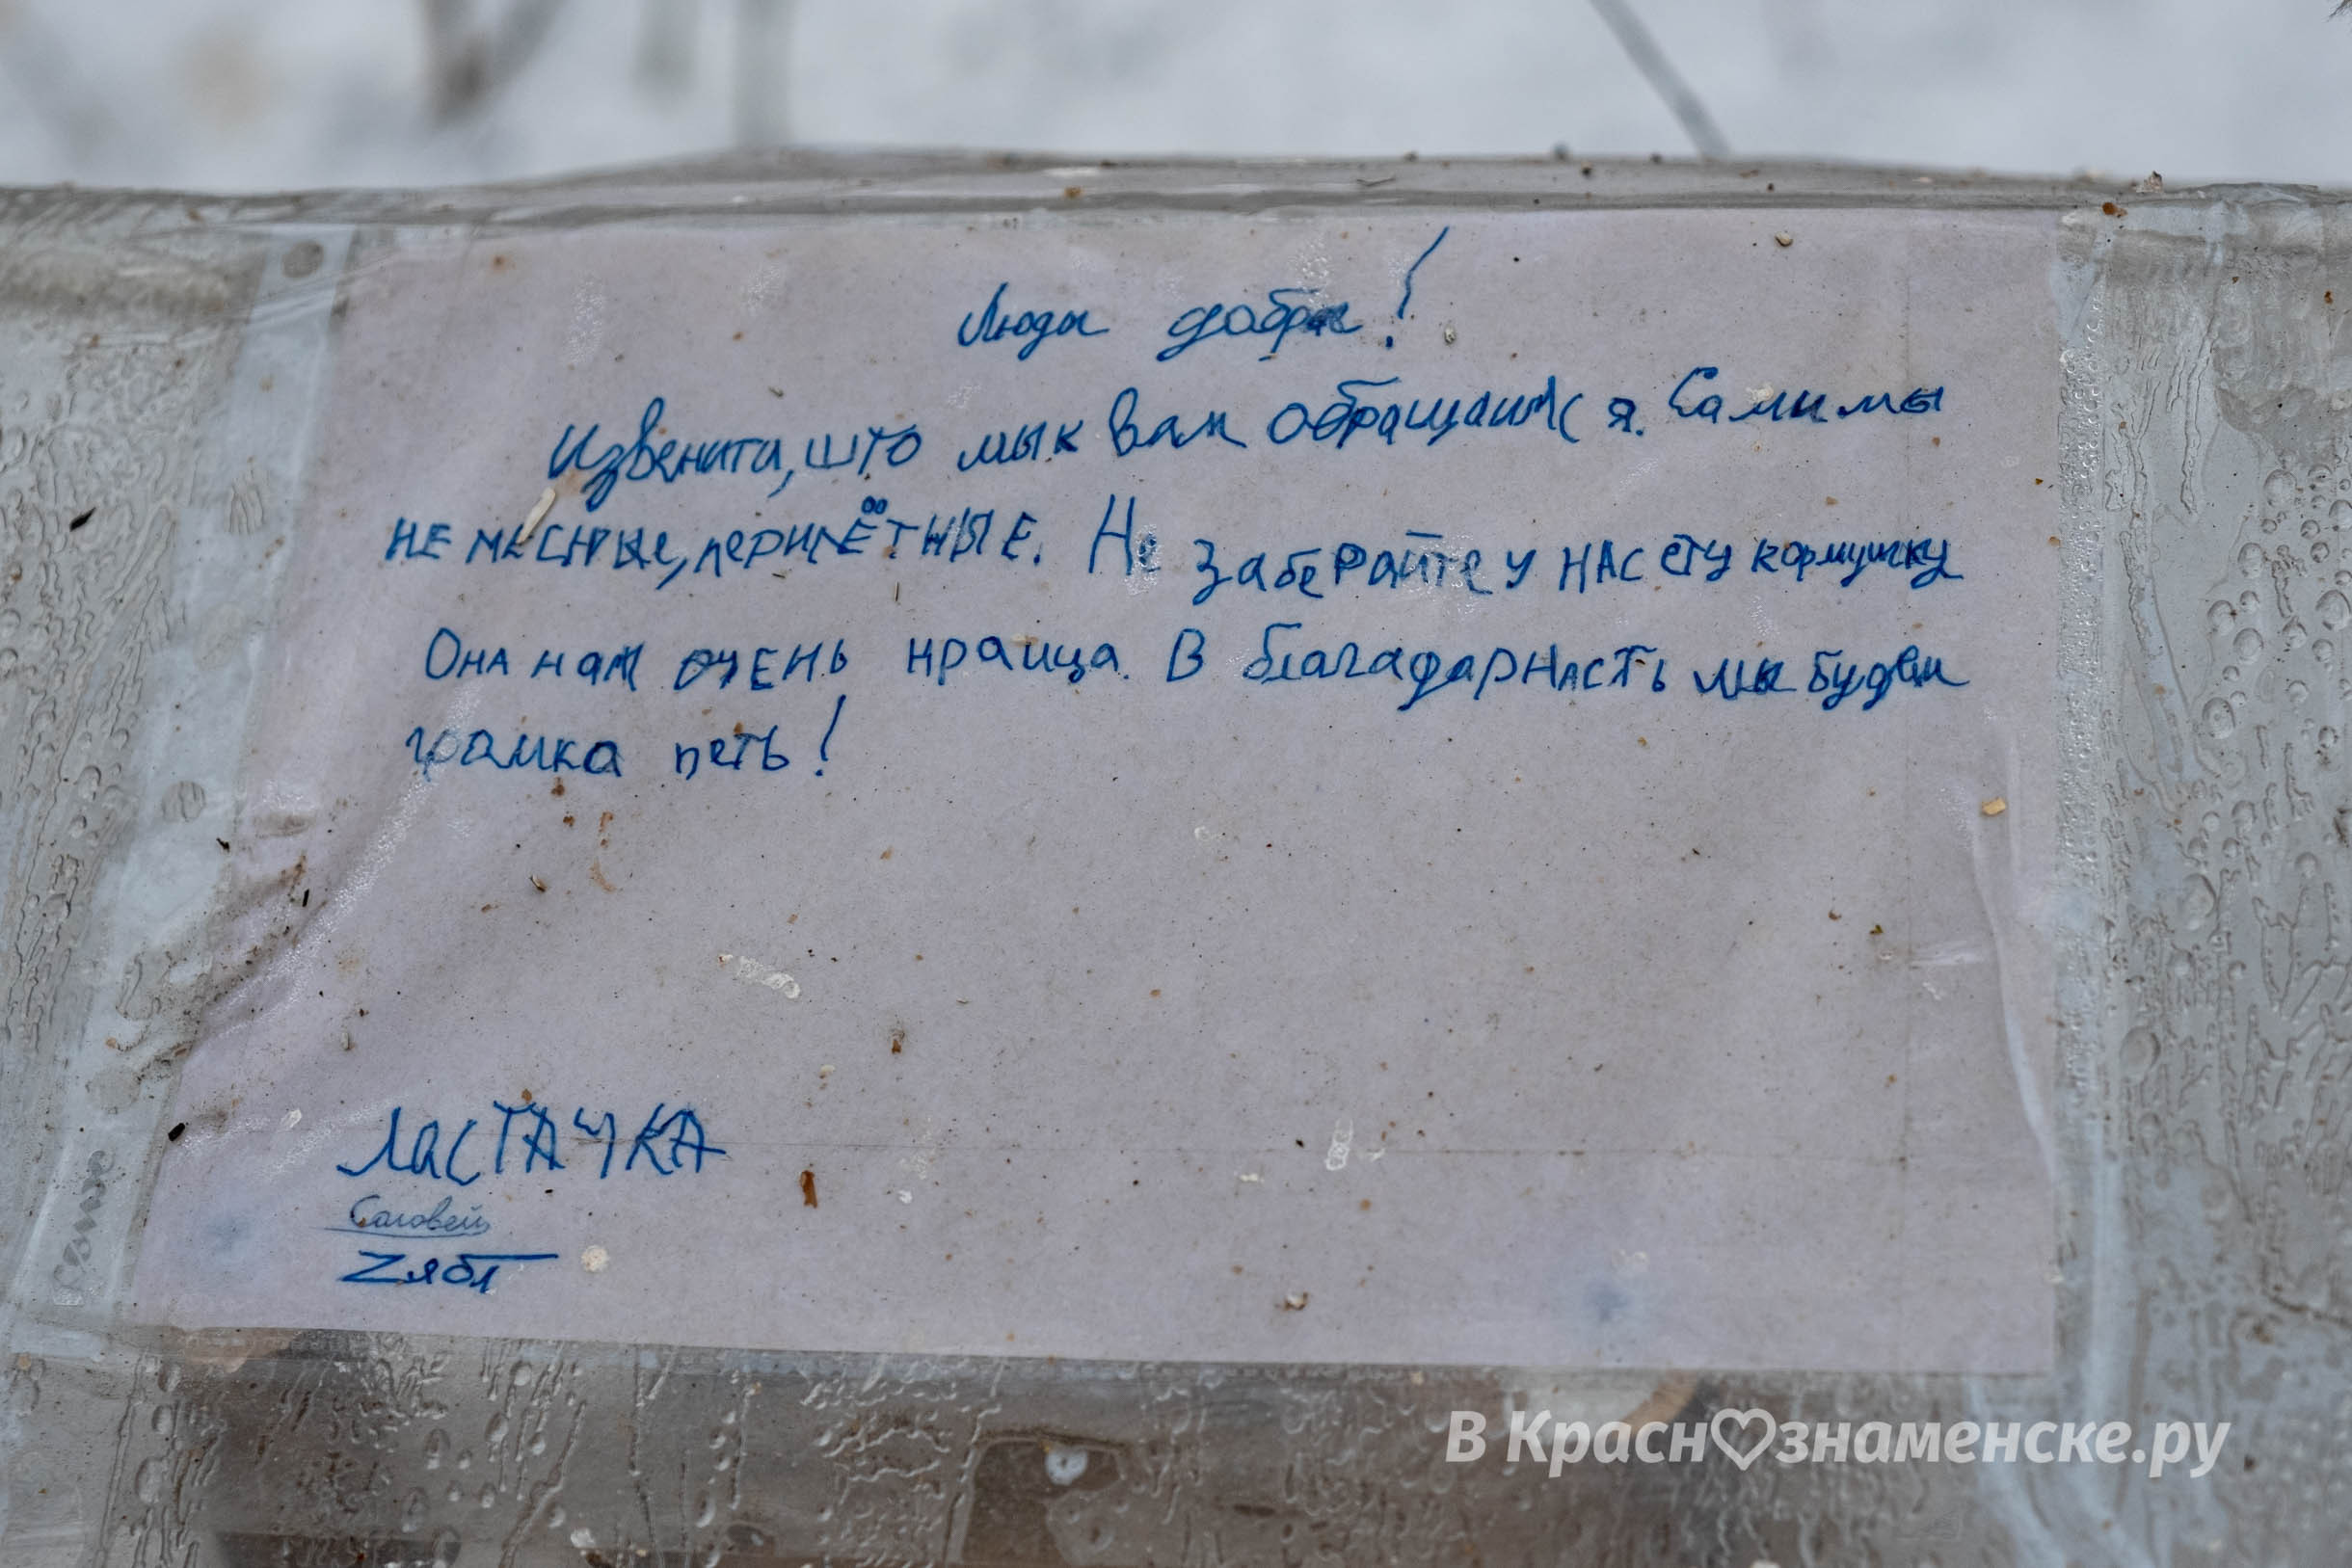 Люди добры!
Извените, што мы к вам обращаимся. Сами мы
не месные, перилётные. Не заберайте у нас ету кормушку
Она нам очень нраица. В благадарнасть мы будем
грамка петь!
Ластачка
Саловей
Zябл
В Красн♡знаменске.ру